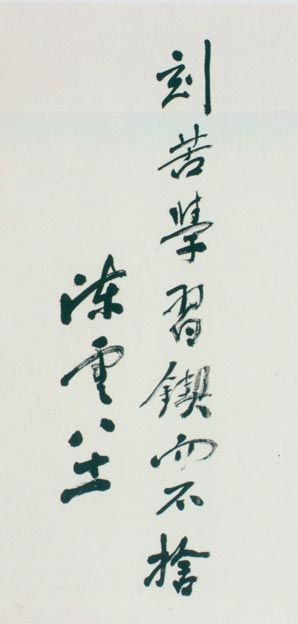 刻苦學習鍥而不捨
陳雲八十